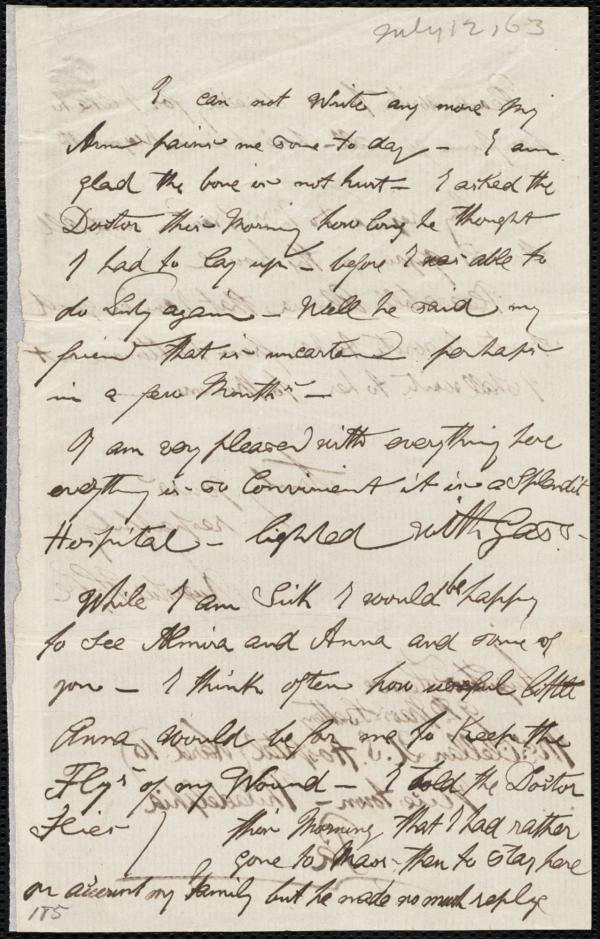 July 12, 63
I can not write any more my
Arm pains me some to day — I am
glad the bone is not hurt — I asked the
Doctor this Morning how long he thought
I had to lay up — before I was able to
do Duty again — Well he said my
friend that is uncertend perhaps
in a few Months —
I am very pleased with everything here
everything is so Convinient it is a Splendit
Hospital — lighted with Gass —
While I am Sick I would be happy
to see Almira and Anna and some of
you — I think often how useful little
Anna would be for me to Keep the
Fly's of my Wound — I told the Doctor
Flies this Morning that I had rather
gone to Mass. then to stay here
on account my family but he made no much reply
185